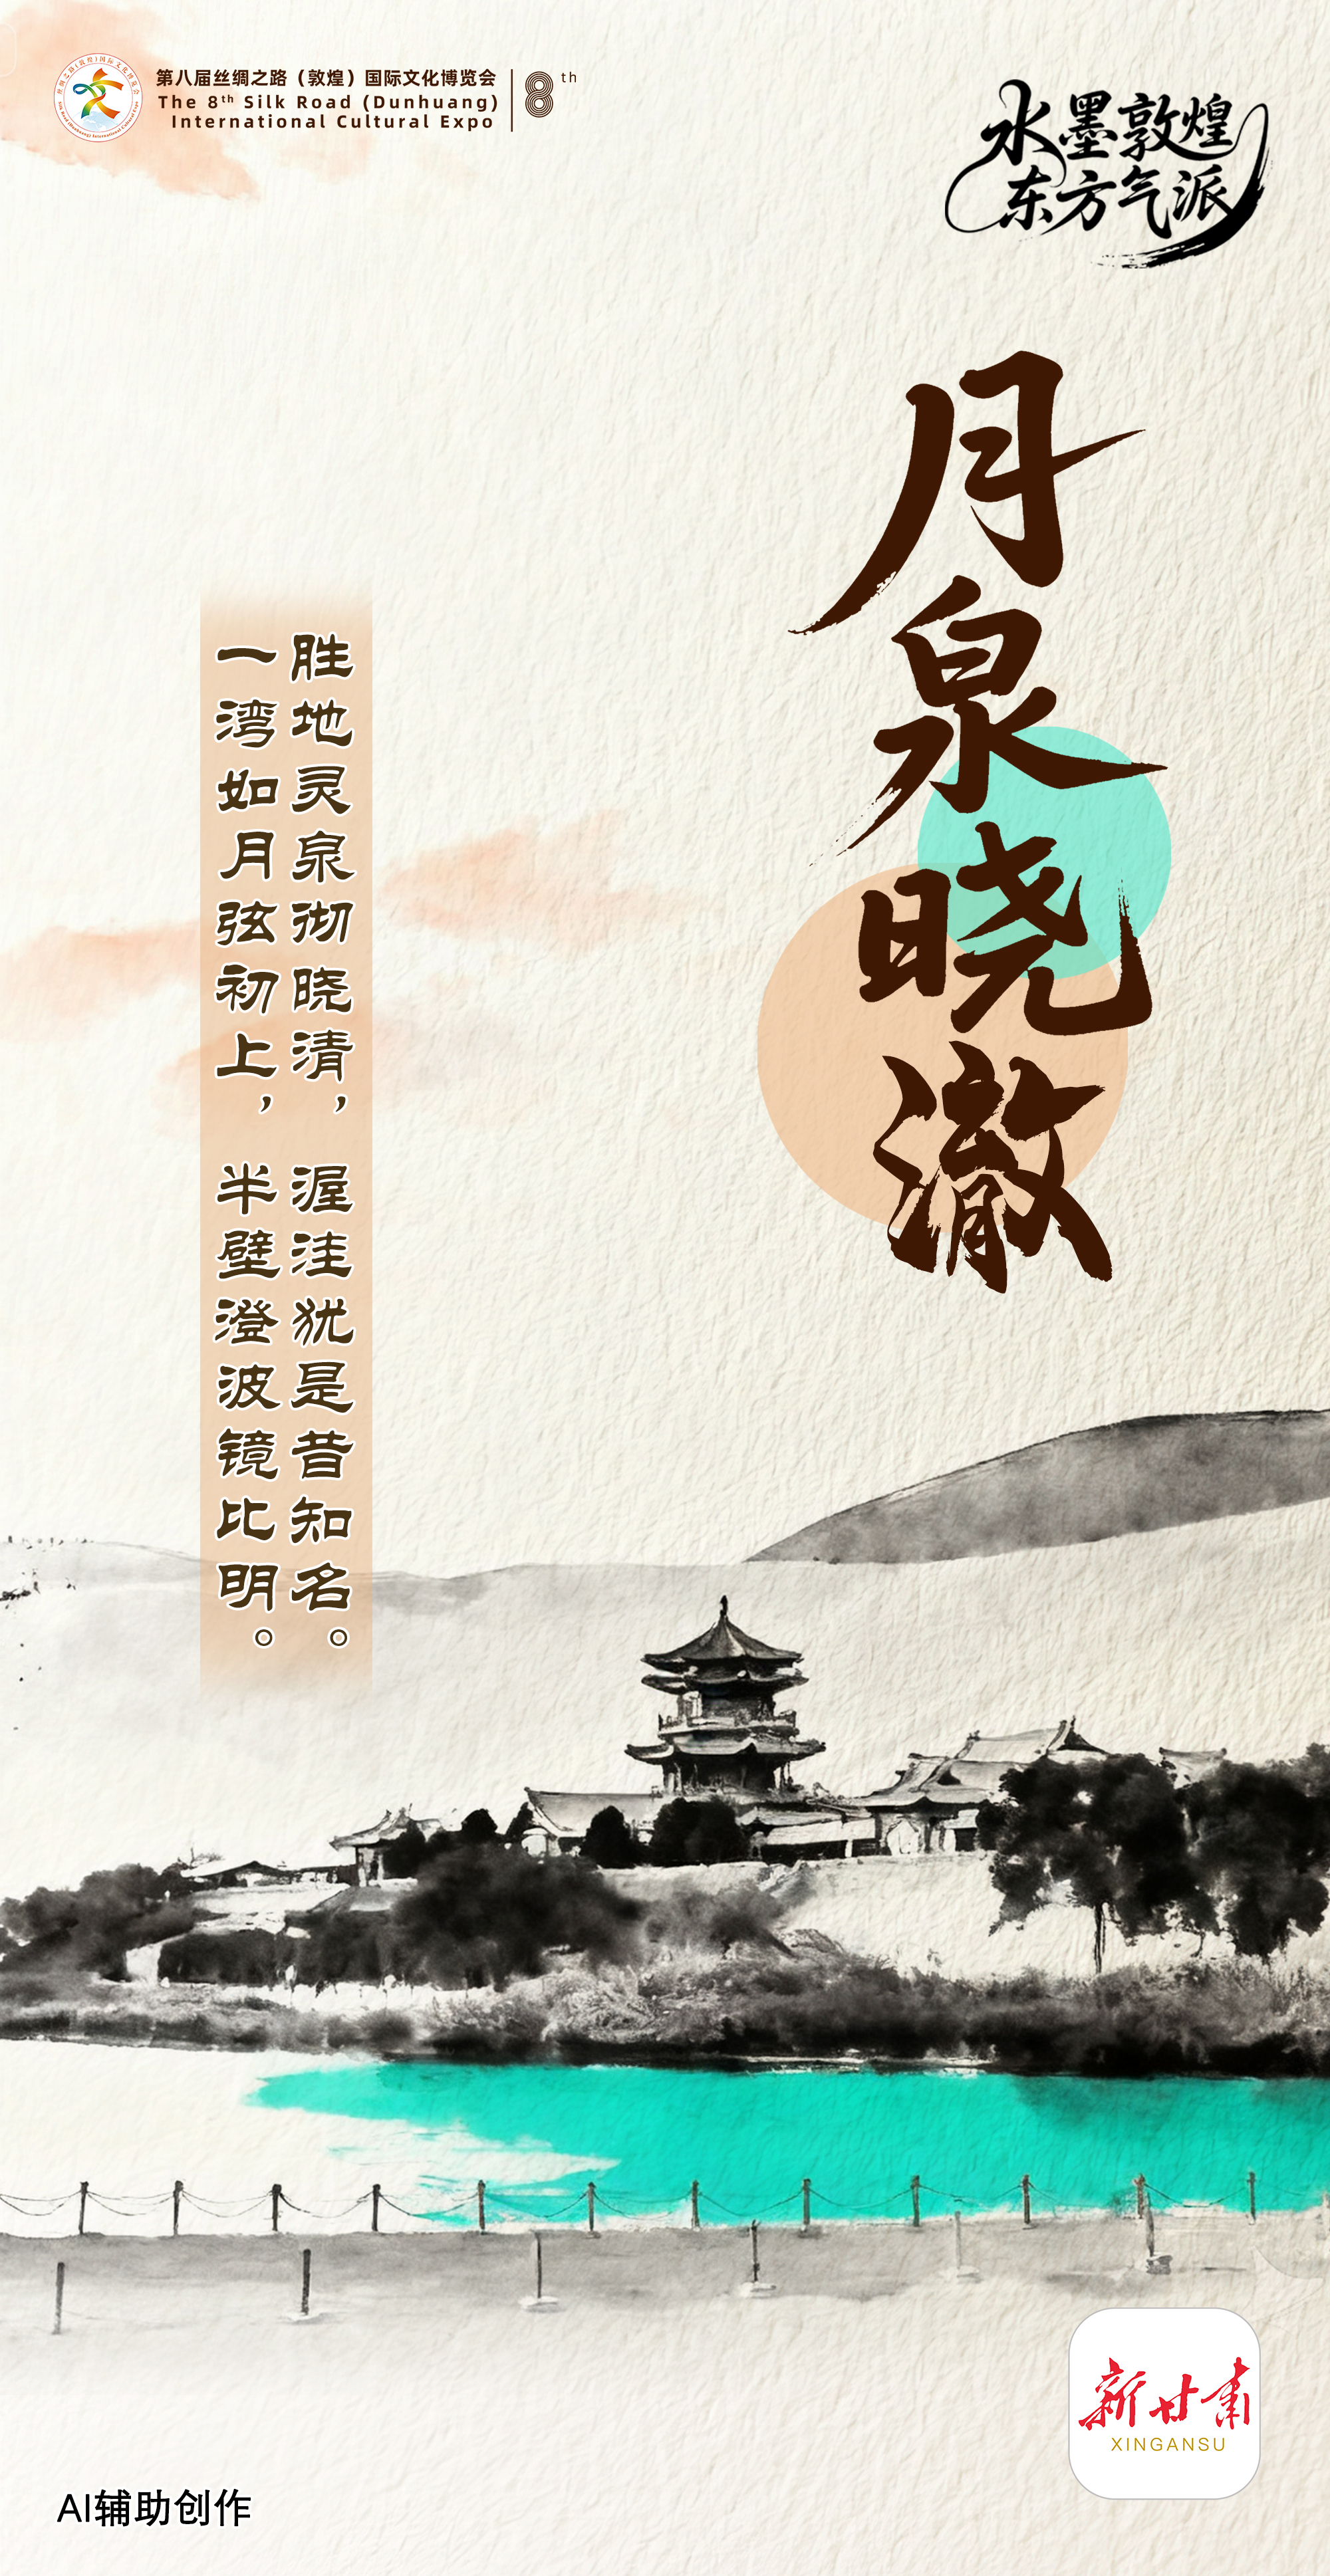 第八届丝绸之路（敦煌）国际文化博览会
The 8th Silk Road (Dunhuang)
International Cultural Expo
8th
水墨敦煌
东方气派
月泉晓澈
胜地灵泉彻晓清，渥洼犹是昔知名。
一湾如月弦初上，半壁澄波镜比明。
新甘肃
XINGANSU
AI辅助创作